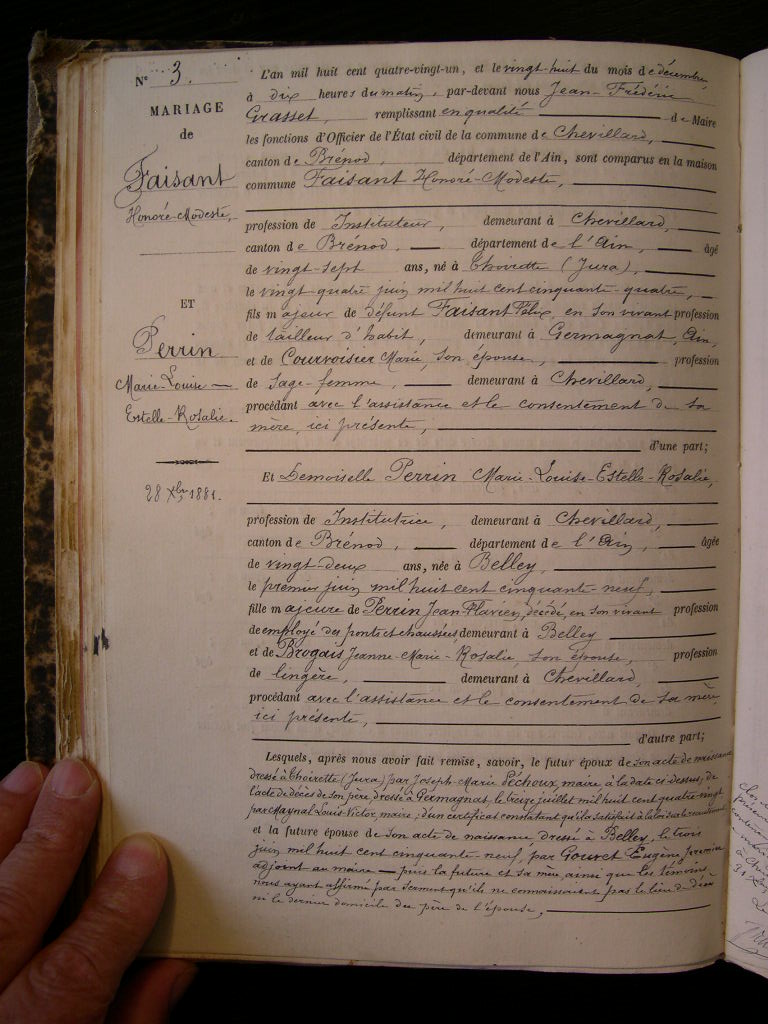 N° 3.
MARIAGE
de
Faisant
Honoré-Modeste,
ET
Perrin
Marie-Louise
Estelle-Rosalie.
28 Xbre 1881.
L'an mil huit cent quatre-vingt-un, et le vingt-huit du mois de décembre
à dix heures du matin, par-devant nous Jean-Frédéric
Grasset, remplissant en qualité de Maire
les fonctions d'Officier de l'État civil de la commune de Chevillard,
canton de Brénod, département de l'Ain, sont comparus en la maison
commune Faisant Honoré-Modeste,
profession de Instituteur, demeurant à Chevillard,
canton de Brénod, département de l'Ain, âgé
de vingt-sept ans, né à Thoirette (Jura),
le vingt-quatre juin mil huit cent cinquante-quatre,
fils majeur de défunt Faisant Félix, en son vivant profession
de tailleur d'habit, demeurant à Germagnat, Ain,
et de Courvoisier Marie, son épouse, profession
de Sage-femme, demeurant à Chevillard,
procédant avec l'assistance et le consentement de sa
mère, ici présente,
d'une part;
Et Demoiselle Perrin Marie-Louise-Estelle-Rosalie,
profession de Institutrice, demeurant à Chevillard,
canton de Brénod, département de l'Ain, âgée
de vingt-deux ans, née à Belley,
le premier juin mil huit cent cinquante-neuf,
fille majeure de Perrin Jean-Flavien, décédé, en son vivant profession
de employé des ponts et chaussées demeurant à Belley
et de Brogais Jeanne-Marie-Rosalie son épouse, profession
de lingère, demeurant à Chevillard,
procédant avec l'assistance et le consentement de sa mère
ici présente,
d'autre part;
Lesquels, après nous avoir fait remise, savoir, le futur époux de son acte de naissance
dressé à Thoirette (Jura) par Joseph-Marie Péchoux, maire à la date ci-dessus; de
l'acte de décès de son père, dressé à Germagnat, le treize juillet mil huit cent quatre-vingt
par Maynal Louis-Victor, maire; d'un certificat constatant qu'il a satisfait à la loi sur le recrutement
et la future épouse de son acte de naissance dressé à Belley, le trois
juin mil huit cent cinquante-neuf, par Gouvet Eugène, premier
adjoint au maire — puis la future et sa mère, ainsi que les témoins,
nous ayant affirmé par serment qu'ils ne connaissaient pas le lieu de décès
ni le dernier domicile du père de l'épouse,